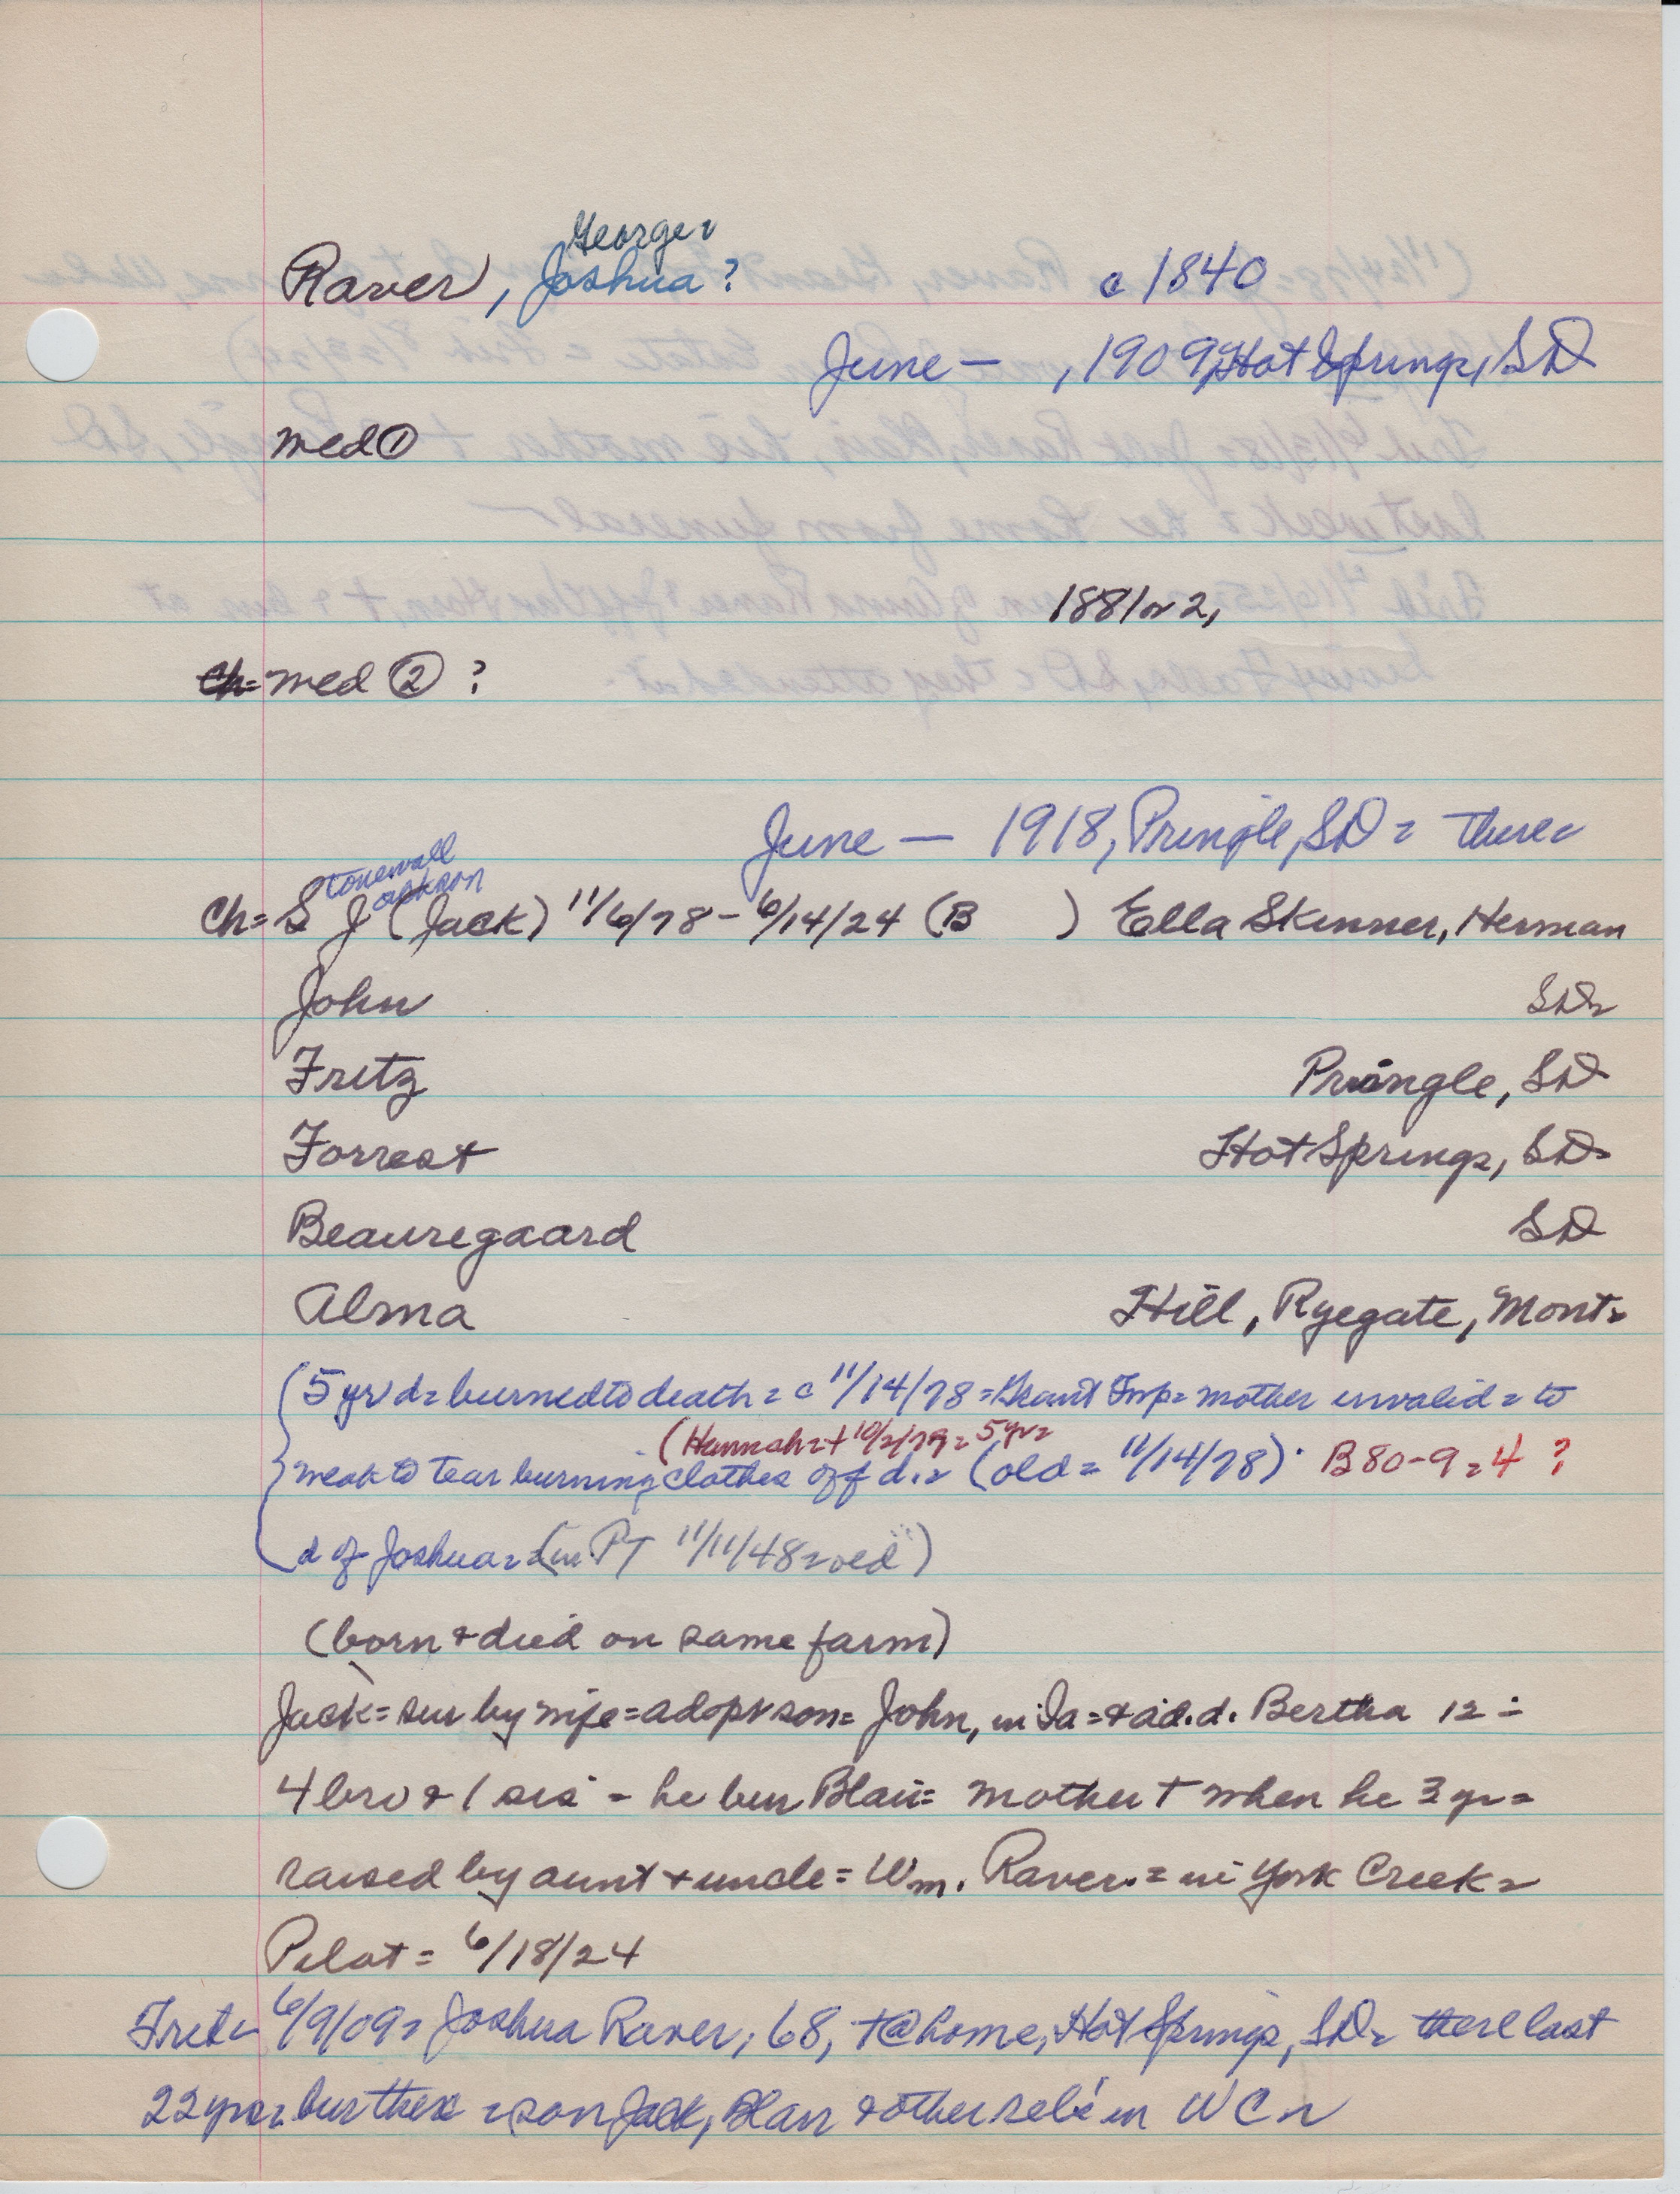 George =
Raver, Joshua? c 1840
June — , 1909, Hot Springs, SD
med ①
1881 or 2,
Ch= med ② ?
June — 1918, Pringle, SD = there =
Stonewall
Jackson
Ch= S J (Jack) 11/6/78 - 6/14/24 (B ) Ella Skinner, Herman
John SD=
Fritz Pringle, SD
Forrest Hot Springs, SD=
Beauregaard SD
Alma Hill, Ryegate, Mont=
(5 yr d= burned to death = c 11/14/78 = Grant Twp= mother invalid = to
(Hannah = + 10/2/79 = 5 yr =
weak to tear burning clothes off d. = (old = 11/14/78) · B 80-9 = 4 ?
d of Joshua = (in PT 11/11/48 = old)
(born & died on same farm)
Jack = sur by wife = adopt son = John, in Ia = & ad. d. Bertha 12 =
4 bro & 1 sis - he bur Blair = mother + when he 3 yr =
raised by aunt & uncle = Wm. Raver. = in York Creek =
Pilot = 6/18/24
Trib= 6/9/09 = Joshua Raver, 68, + @ home, Hot Springs, SD = there last
22 yrs = bur there = son Jack, Blair & other rels in WC =